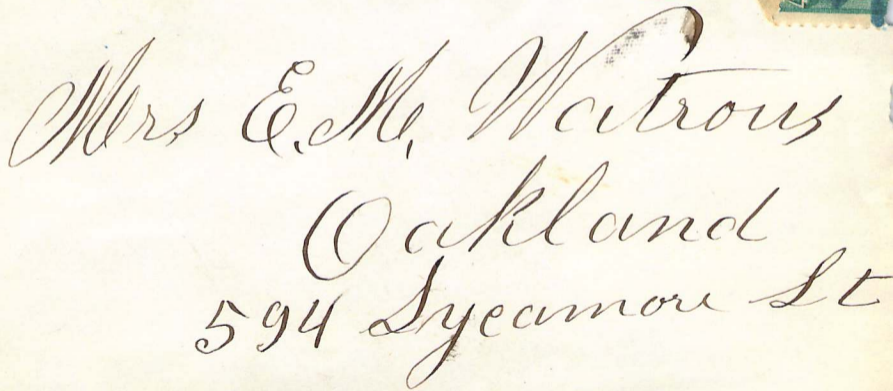 Mrs E. M. Watrous
Oakland
594 Sycamore St